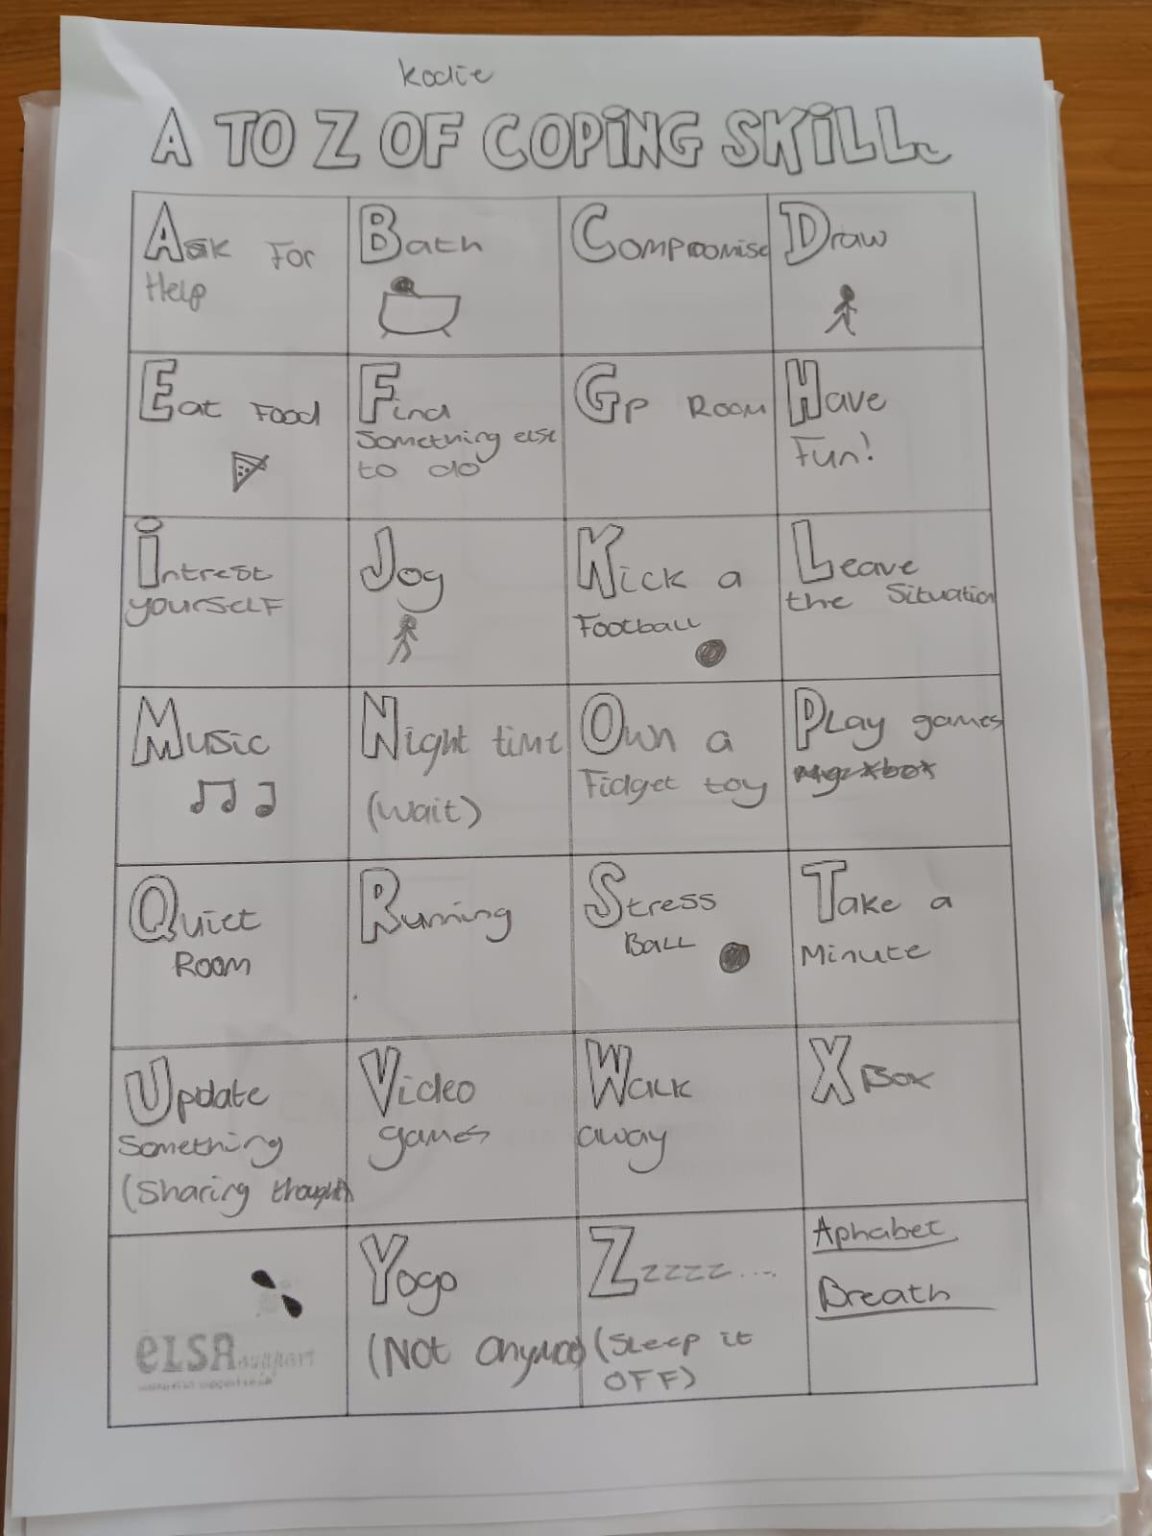 Kodie
A TO Z OF COPING SKILL
Ask For
Help
Bath
Compromise
Draw
Eat Food
Find
Something else
to do
Gp Room
Have
Fun!
Intrest
yourself
Jog
Kick a
Football
Leave
the Situation
Music
Night time
(wait)
Own a
Fidget toy
Play games
Quiet
Room
Running
Stress
Ball
Take a
Minute
Update
Something
(Sharing thought)
Video
games
Walk
away
XBox
eLSA support
Yogo
(Not
Zzzzz....
(Sleep it
OFF)
Aphabet
Breath